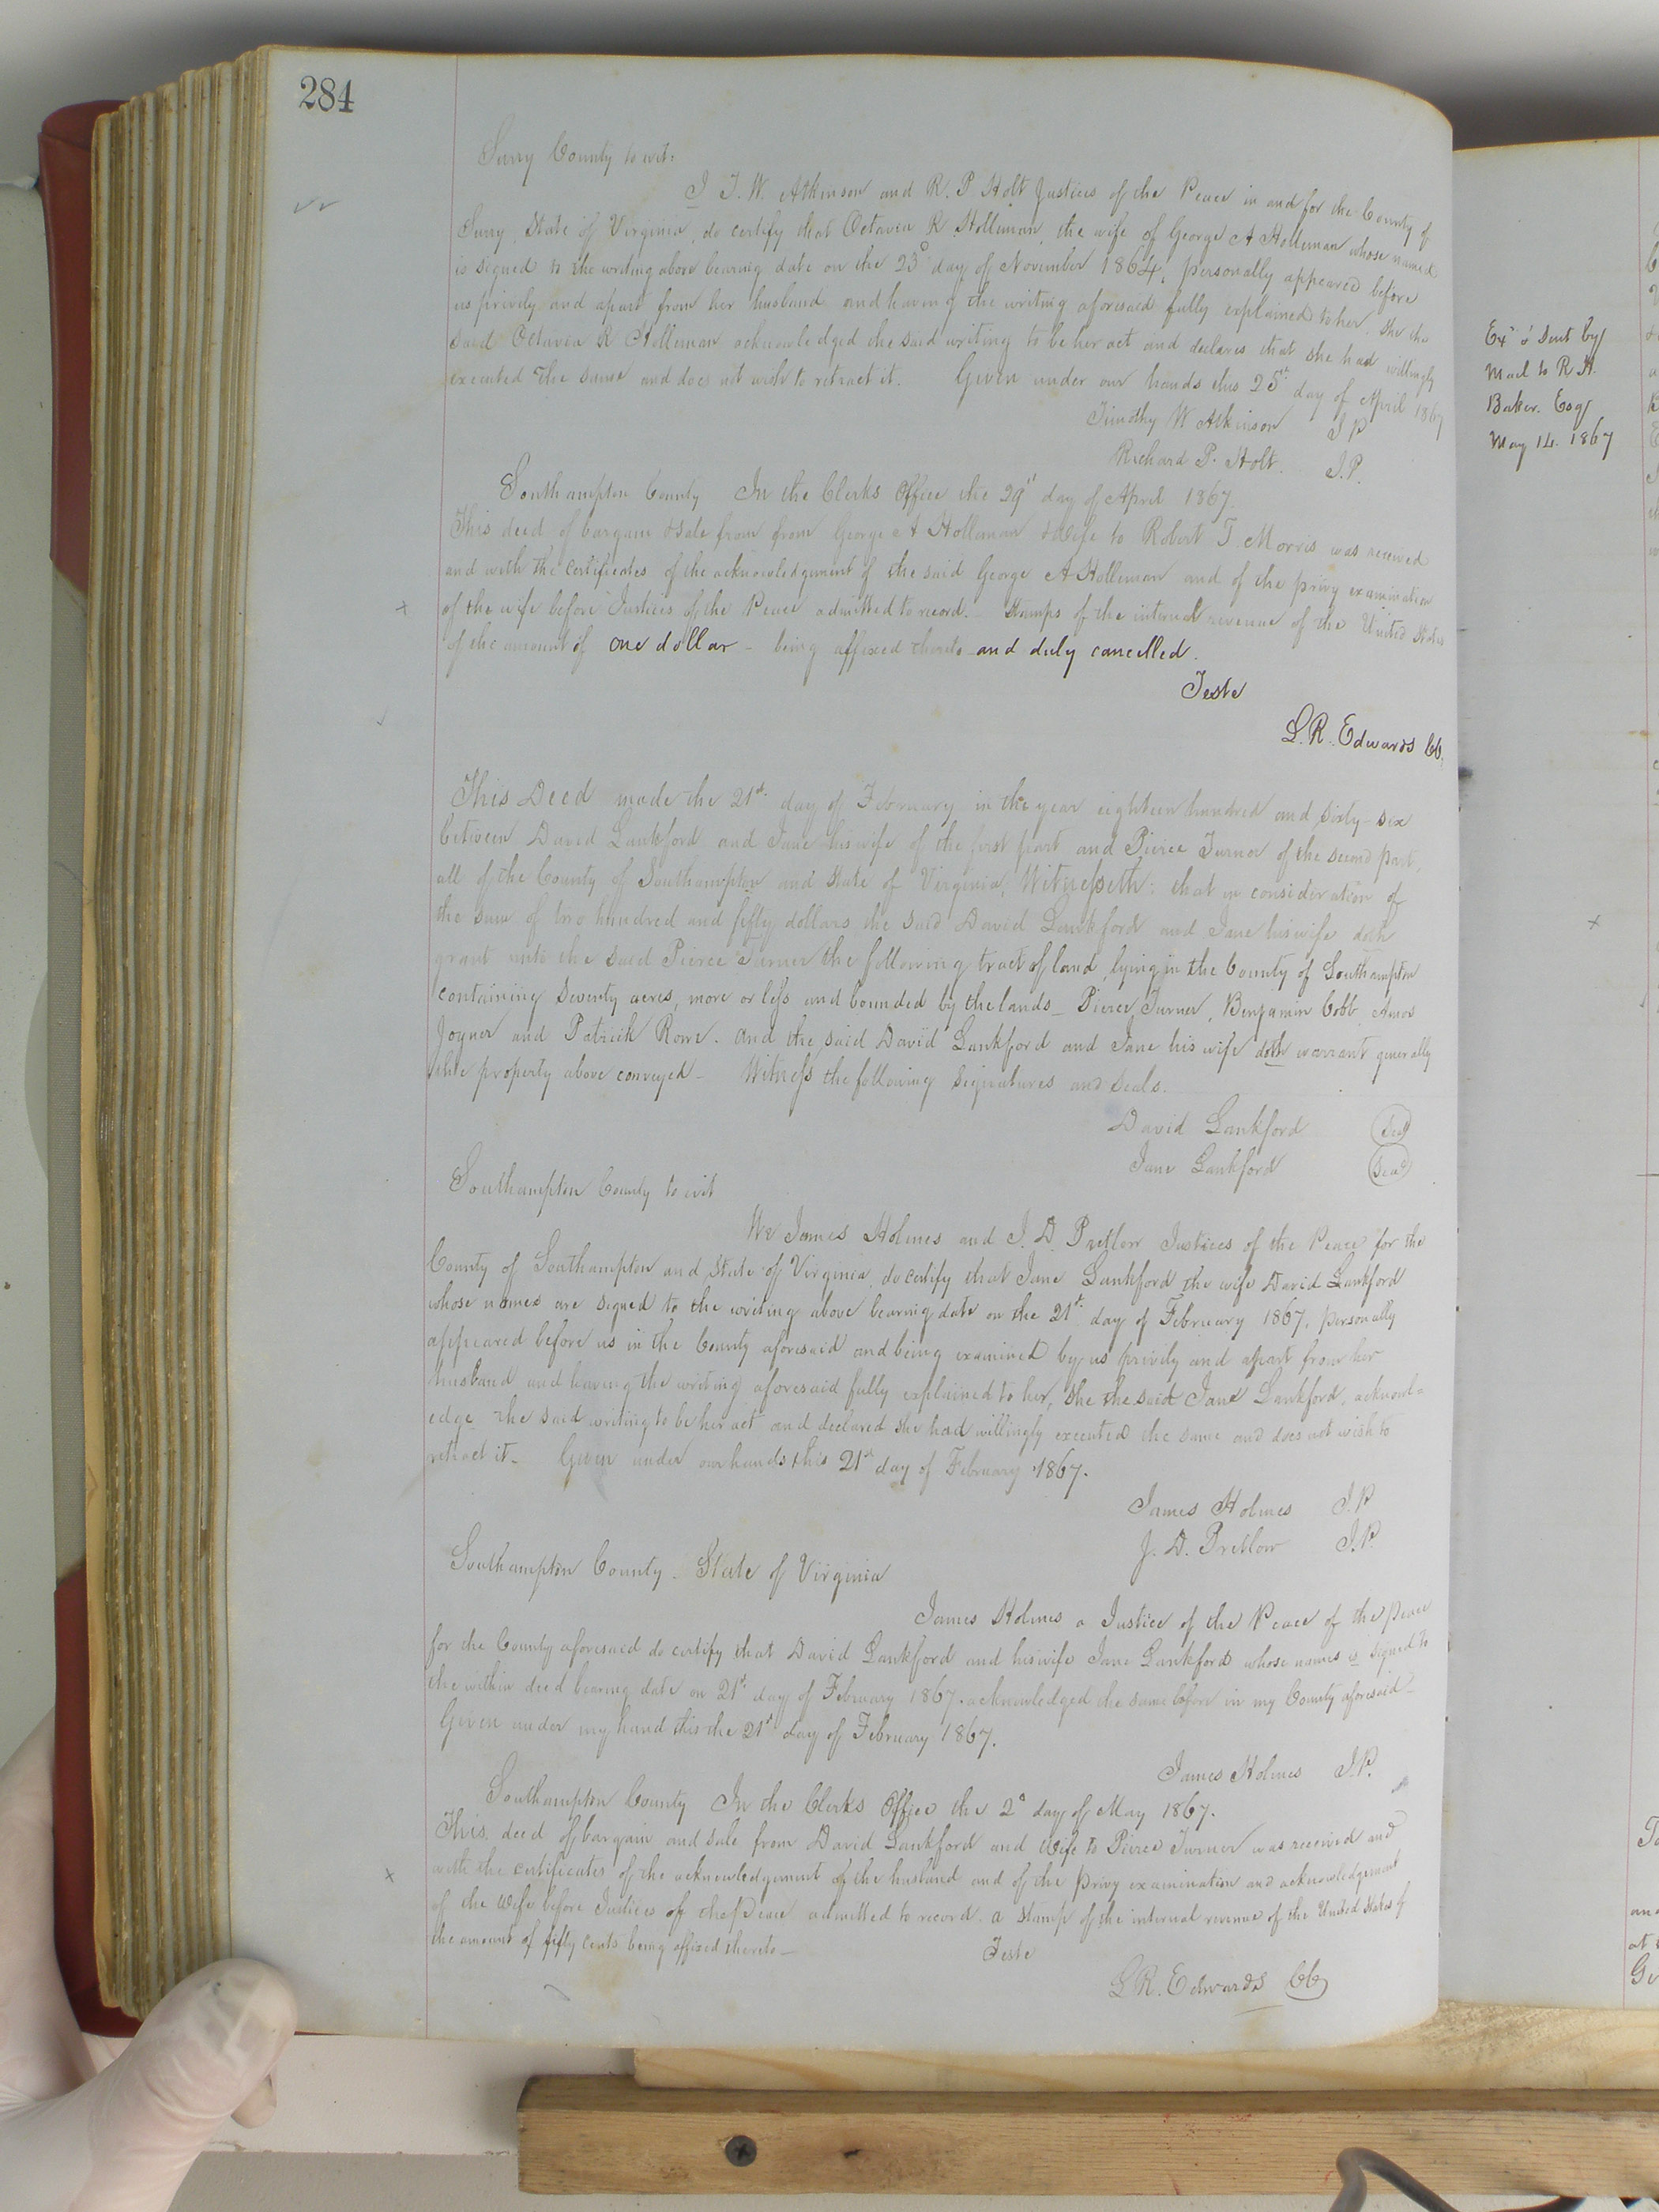 284
Surry County to wit:
I T. W. Atkinson and R. P Holt Justices of the Peace in and for the County of
Surry State of Virginia, do certify that Octavia R Holleman, the wife of George A Holleman whose names
is signed to the writing above bearing date on the 23d day of November 1864, personally appeared before
us privily and apart from her husband and having the writing aforesaid fully explained to her. She the
said Octavia R Holleman acknowledged the said writing to be her act and declares that she had willingly
executed the same and does not wish to retract it. Given under our hands this 25th day of April 1867
Timothy W Atkinson J P
Richard P. Holt. J.P.
Southampton County In the Clerks Office the 29th day of April 1867.
This deed of bargain & sale from from George A Holleman & Wife to Robert T. Morris was received
and with the certificates of the acknowledgement of the said George A Holleman and of the privy examination
of the wife before Justices of the Peace admitted to record. Stamps of the internal revenue of the United States
of the amount of one dollar - being affixed thereto and duly cancelled.
Teste
L.R. Edwards CC.
This Deed made the 21st day of February in the year eighteen hundred and sixty-six
between David Lankford and Jane his wife of the first part and Pierce Turner of the second part,
all of the County of Southampton and State of Virginia, Witnesseth: that in consideration of
the sum of two hundred and fifty dollars the said David Lankford and Jane his wife doth
grant unto the said Pierce Turner the following tract of land, lying in the County of Southampton
containing Seventy acres, more or less and bounded by the lands - Pierce Turner, Benjamin Cobb Amos
Joyner and Patrick Rowe. And the said David Lankford and Jane his wife doth warrant generally
the property above conveyed - Witness the following Signatures and Seals.
David Lankford Seal
Jane Lankford Seal
Southampton County to wit
We James Holmes and J. D. Pretlow Justices of the Peace for the
County of Southampton and State of Virginia, do certify that Jane Lankford the wife David Lankford
whose names are signed to the writing above bearing date on the 21st day of February 1867, personally
appeared before us in the County aforesaid and being examined by us privily and apart from her
husband and having the writing aforesaid fully explained to her, She the said Jane Lankford, acknowl=
edge the said writing to be her act and declared she had willingly executed the same and does not wish to
retract it. Given under our hands this 21st day of February 1867.
James Holmes J.P.
J. D. Pretlow J.P.
Southampton County - State of Virginia
James Holmes a Justice of the Peace of the peace
for the County aforesaid do certify that David Lankford and his wife Jane Lankford whose names is signed to
the within deed bearing date on 21st day of February 1867. acknowledged the same before in my County aforesaid
Given under my hand this the 21st day of February 1867.
James Holmes J.P.
Southampton County In the Clerks Office the 2d day of May 1867.
This deed of bargain and sale from David Lankford and Wife to Pierce Turner was received and
with the certificates of the acknowledgement of the husband and of the privy examination and acknowledgement
of the Wife before Justices of the Peace admitted to record. a Stamp of the internal revenue of the United States of
the amount of fifty cents being affixed thereto -
Teste
L R. Edwards CC
Exd & Sent by
Mail to R H.
Baker. Esq
May 14. 1867